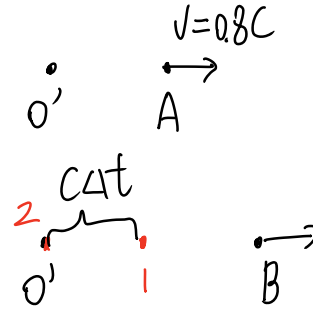 V=0.8C
O' A
CΔt
2
1
O' B